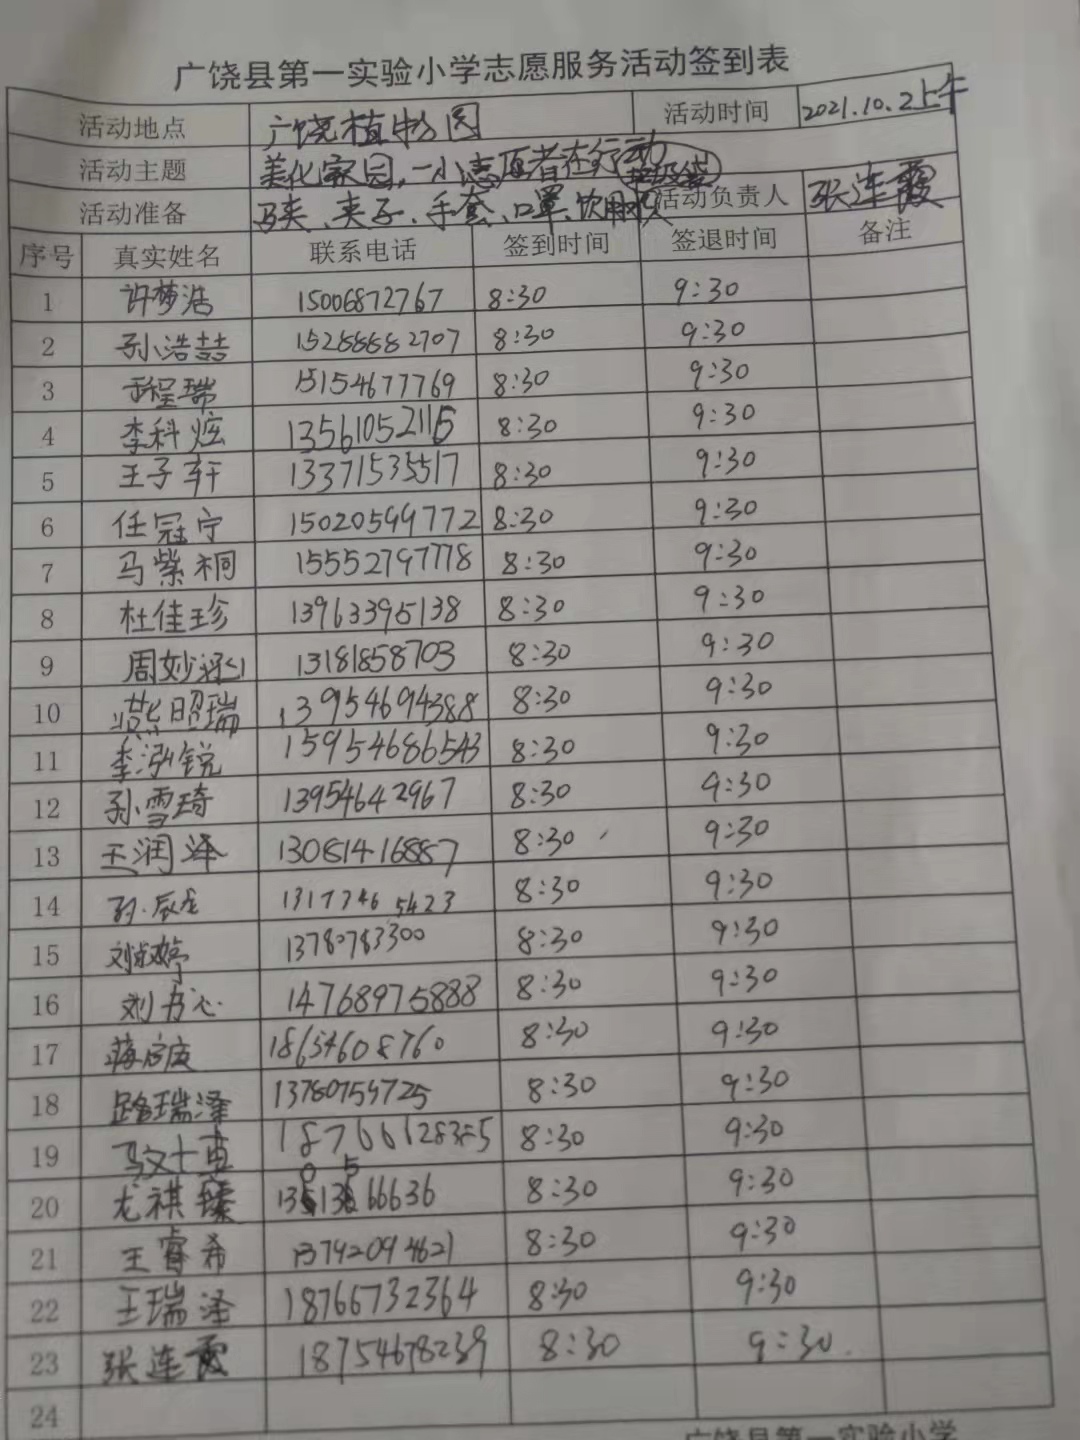 广饶县第一实验小学志愿服务活动签到表
活动地点 广饶植物园 活动时间 2021.10.2上午
活动主题 美化家园,一小志愿者在行动
垃圾袋
活动准备 马夹、夹子、手套、口罩、饮用水 活动负责人 张连霞
序号 真实姓名 联系电话 签到时间 签退时间 备注
1 许梦浩 15006872767 8:30 9:30
2 孙浩喆 15288882707 8:30 9:30
3 程瑞 15154677769 8:30 9:30
4 李科炫 13561052115 8:30 9:30
5 王子轩 13371535517 8:30 9:30
6 任冠宁 15020599772 8:30 9:30
7 马紫桐 15552797778 8:30 9:30
8 杜佳珍 13963395138 8:30 9:30
9 周妙涵 13181858703 8:30 9:30
10 照瑞 13954694388 8:30 9:30
11 李泓锐 15954686543 8:30 9:30
12 孙雪琦 13954642967 8:30 9:30
13 王润泽 13081416887 8:30 9:30
14 孙辰龙 13173465423 8:30 9:30
15 刘淑婷 13780783300 8:30 9:30
16 刘书心 14768975888 8:30 9:30
17 蒋 18654608760 8:30 9:30
18 路瑞泽 13780754725 8:30 9:30
19 马文博 8:30 9:30
20 尤祺臻 8:30 9:30
21 王睿希 13792094621 8:30 9:30
22 王瑞泽 18766732364 8:30 9:30
23 张连霞 18754678239 8:30 9:30
24
广饶县第一实验小学